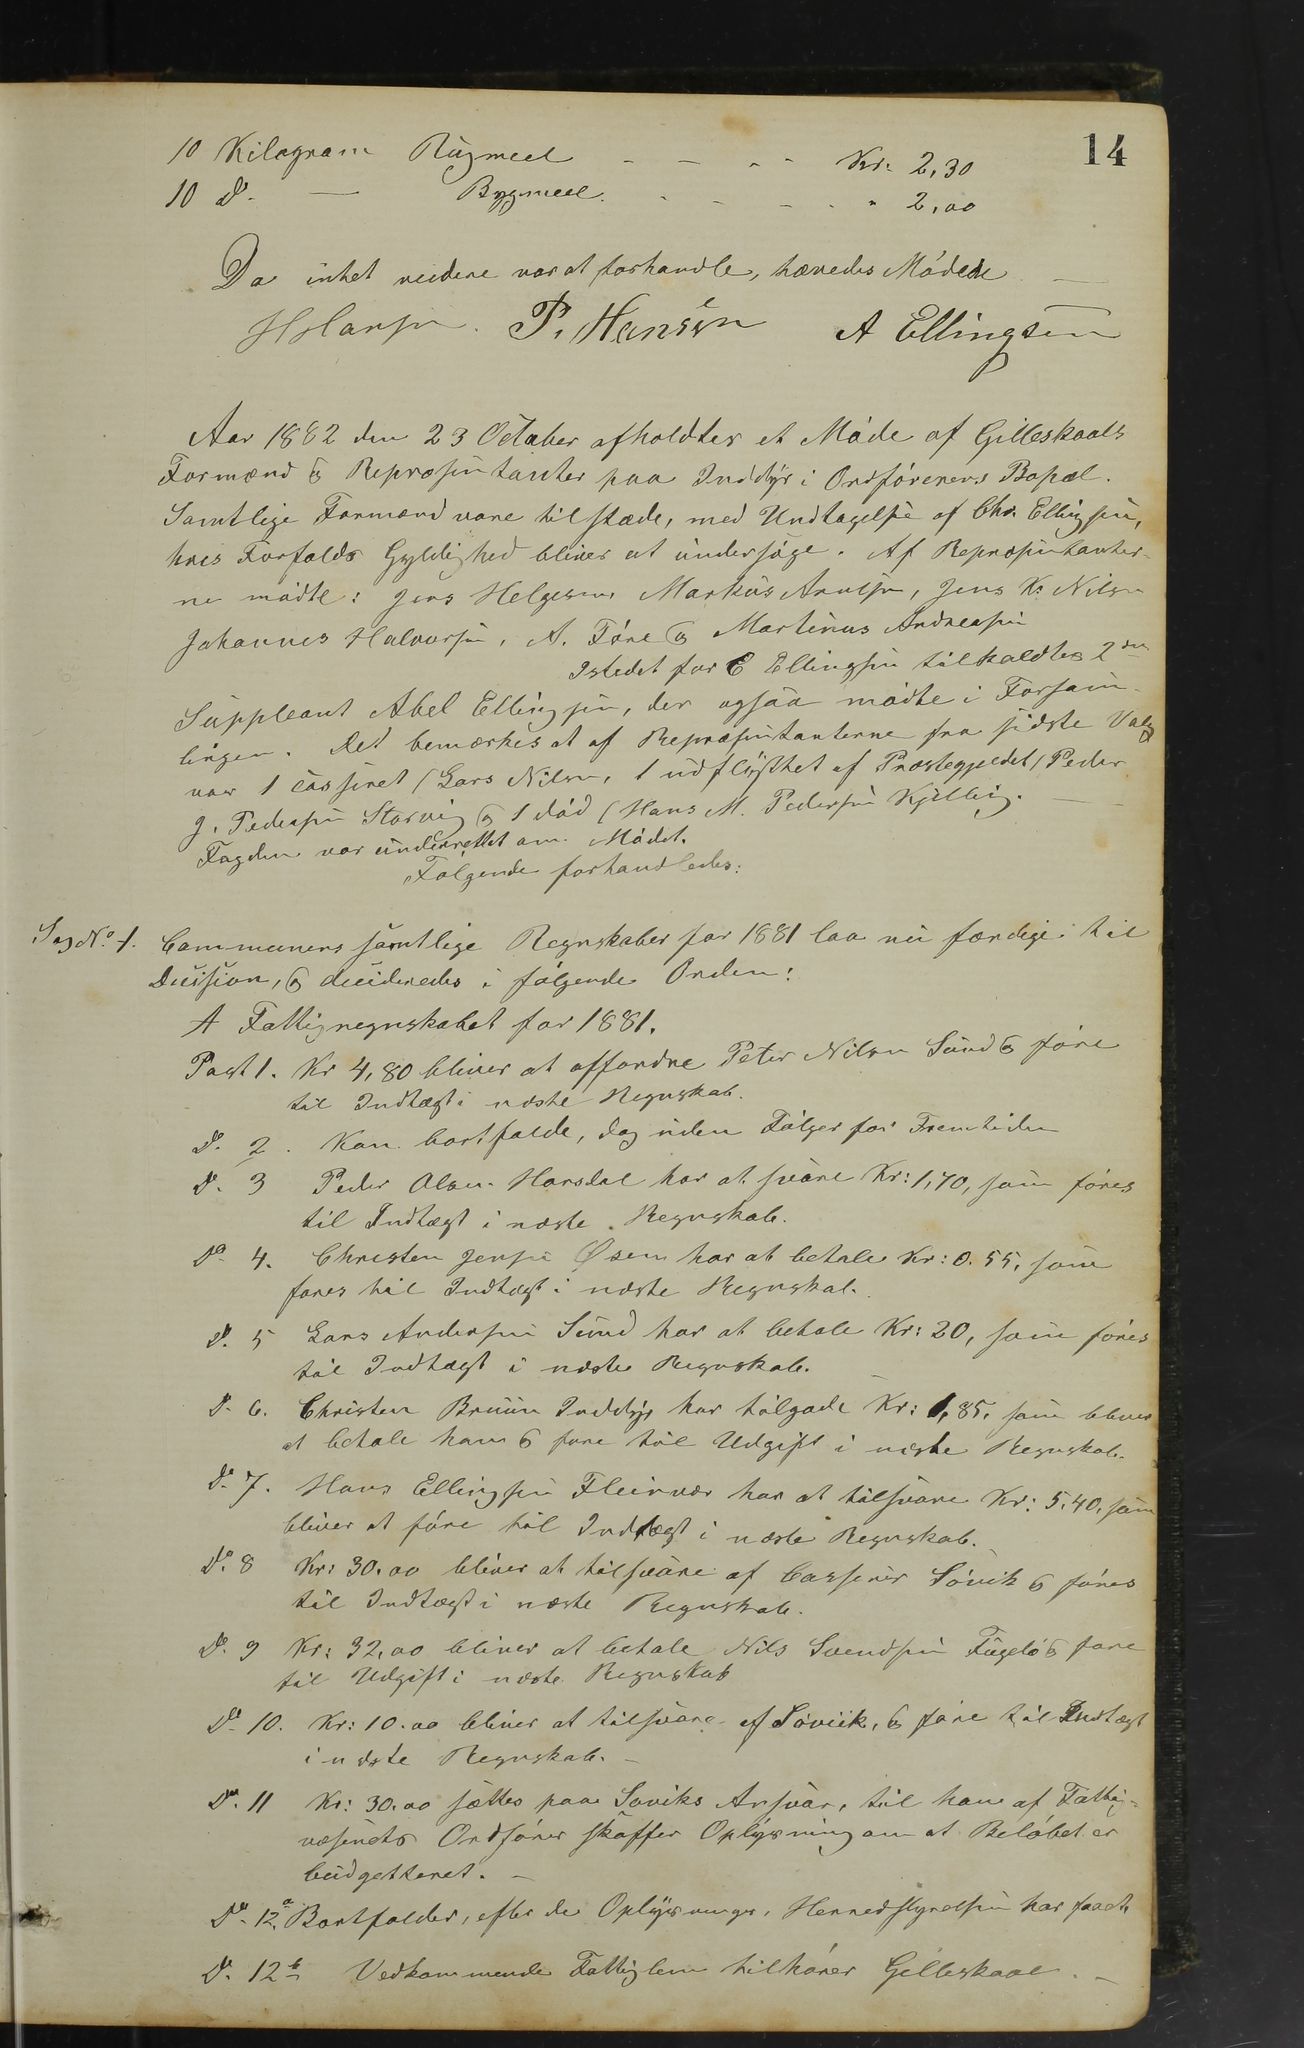 14
10 Kilogram Rugmeel - - - - Kr. 2,30
10 Do. — Bygmeel. - - - - " 2,00
Da intet videre var at forhandle, hævedes Mødede —
P. Hansen A Ellingsen
Aar 1882 den 23 October afholdtes et Møde af Gilleskaals
Formænd & Repræsentanter paa Inddyr i Ordførerens Bopæl.
Samtlige Formænd vare tilstæde, med Undtagelse af Chr. Ellingsen,
hvis Forfalds Gyldighed bliver at undersøge. Af Repræsentanter-
ne mødte: Jens Helgesen, Markus Arntsen, Jens K. Nilsen
Johannes Halvorsen, A. Føre & Martinus Andreasen
Istedet for C Ellingsen tilkaldtes 2den
Suppleant Abel Ellingsen, der ogsaa mødte i Forsam-
lingen. Det bemærkes at af Repræsentanterne fra sidste Valg
var 1 casseret (Lars Nilsen, 1 udflyttet af Præstegjeldet (Peder
J. Pedersen Storvig & 1 død (Hans M. Pedersen Kjelling. —
Fogden var underrettet om Mødet.
Følgende forhandledes:
Sag No. 1. Communens samtlige Regnskaber for 1881 laa nu færdige til
Decision, & decideredes i følgende Orden:
A Fattigregnskabet for 1881.
Post 1. Kr 4,80 bliver at affordre Peter Nilsen Sund & føre
til Indtægt i næste Regnskab.
Do. 2. Kan bortfalde, dog uden Følger for Fremtiden
Do. 3 Peder Olsen Horsdal har at svare Kr: 1,70, som føres
til Indtægt i næste Regnskab.
Do 4. Christen Jensen Øsen har at betale Kr: 0.55, som
føres til Indtægt i næste Regnskab.
Do. 5 Lars Andersen Sund har at betale Kr: 20, som føres
til Indtægt i næste Regnskab.
Do. 6. Christen Bruun Inddyr har tilgode Kr: 1,85, som bliver
at betale ham & føre til Udgift i næste Regnskab.
Do. 7. Hans Ellingsen Fleinvær har at tilsvare Kr: 5,40, som
bliver at føre til Indtægt i næste Regnskab.
Do. 8 Kr: 30.00 bliver at tilsvare af Casserer Søvik & føres
til Indtægt i næste Regnskab.
Do. 9 Kr: 32,00 bliver at betale Nils Svendsen Fugelø & føre
til Udgift i næste Regnskab
Do. 10. Kr: 10.00 bliver at tilsvare af Søviik, & føre til Indtægt
i næste Regnskab. —
Do. 11 Kr: 30.00 sættes paa Søviks Ansvar, til han af Fattig-
væsenets Ordfører skaffer Oplysning om at Beløbet er
budgetteret. —
Do. 12.a Bortfalder, efter de Oplysninger, Herredstyrelsen har faaet.
Do. 12b Vedkommende Fattiglem tilhører Gilleskaal. —